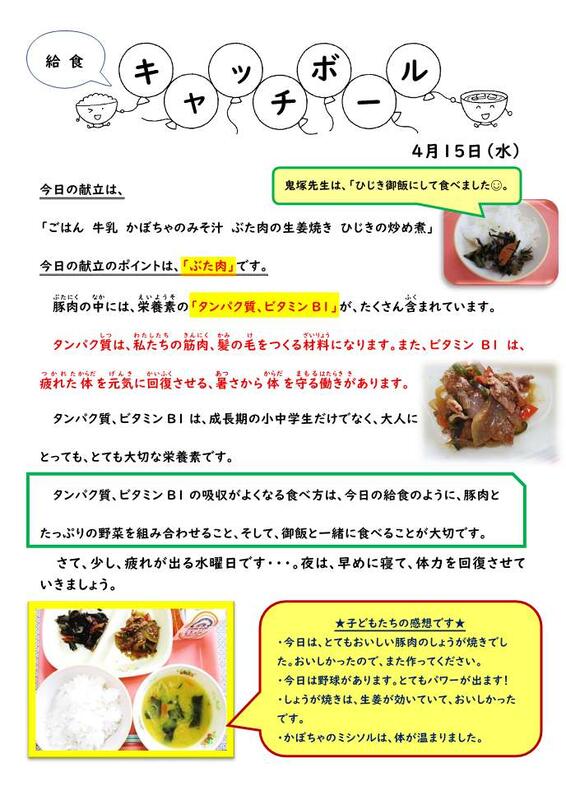 給 食
キャッチボール
4月15日(水)
鬼塚先生は、「ひじき御飯にして食べました☺。
今日の献立は、
「ごはん 牛乳 かぼちゃのみそ汁 ぶた肉の生姜焼き ひじきの炒め煮」
今日の献立のポイントは、「ぶた肉」です。
ぶたにく なか えいようそ ふく
豚肉の中には、栄養素の「タンパク質、ビタミンB1」が、たくさん含まれています。
しつ わたしたち きんにく かみ け ざいりょう
タンパク質は、私たちの筋肉、髪の毛をつくる材料になります。また、ビタミン B1 は、
つかれたからだ げんき かいふく あつ からだ まもるはたらき
疲れた体を元気に回復させる、暑さから体を守る働きがあります。
タンパク質、ビタミンB1は、成長期の小中学生だけでなく、大人に
とっても、とても大切な栄養素です。
タンパク質、ビタミンB1の吸収がよくなる食べ方は、今日の給食のように、豚肉と
たっぷりの野菜を組み合わせること、そして、御飯と一緒に食べることが大切です。
さて、少し、疲れが出る水曜日です・・・。夜は、早めに寝て、体力を回復させて
いきましょう。
★子どもたちの感想です★
・今日は、とてもおいしい豚肉のしょうが焼きでし
た。おいしかったので、また作ってください。
・今日は野球があります。とてもパワーが出ます!
・しょうが焼きは、生姜が効いていて、おいしかった
です。
・かぼちゃのミシソルは、体が温まりました。